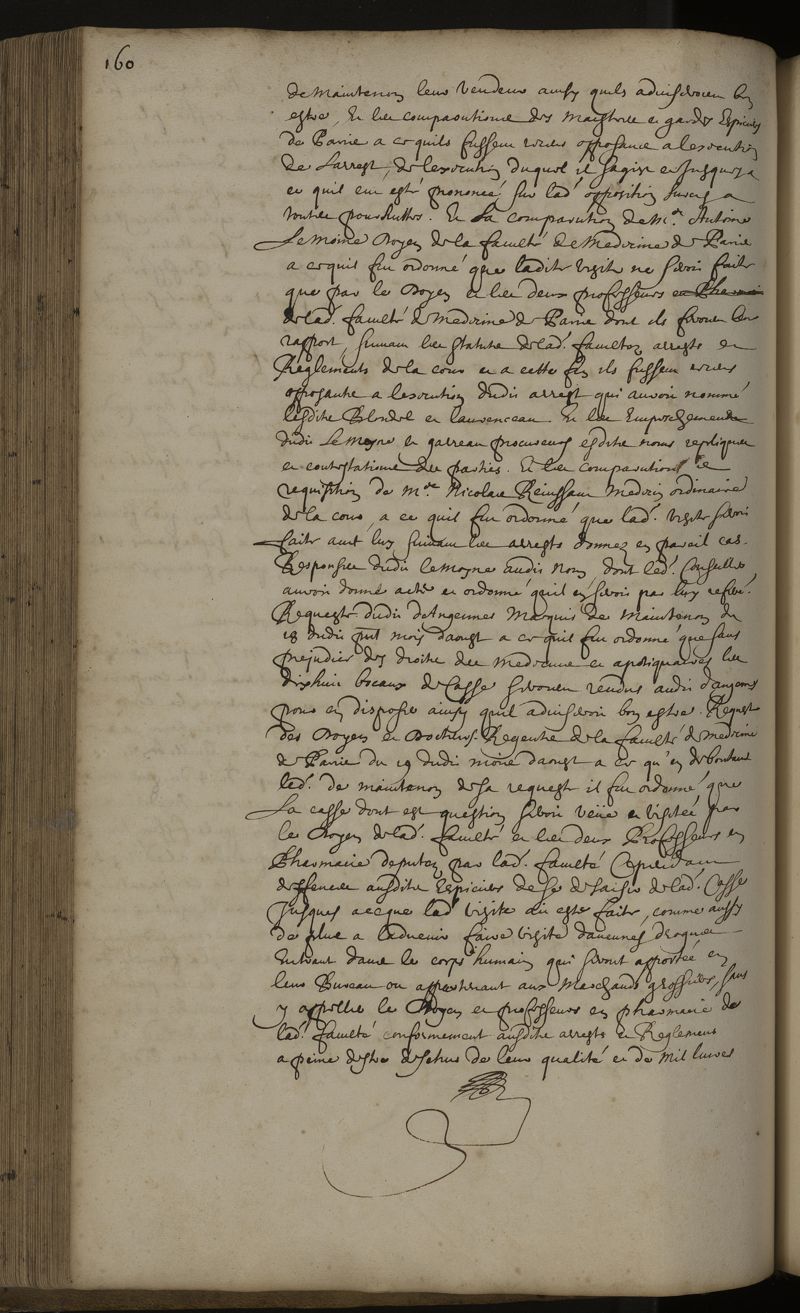 160
de Maintenon leur vendeur ainsy quils adviseroient bon
estre, Et les comparutions des Maistres et gardes Espiciers
de Paris a ce quils fussent receus opposans a lexecution
de Larrest, de lexecution duquel il sagist et Jusques a
ce quil eut esté prononcé sur lad. opposition surcis a
toutes poursuittes. Et La comparution de Me Antoine
Le Moine Doyen de la faculté de Medecine de Paris
a ce quil fut ordonné que ladite visite ne seroit faite
que par le Doyen et les deux professeurs en Pharmacie
de lad. faculté de Medecine de Paris dont ils feroient leur
rapport, suivant les statuts de lad. faculté, arrests et
Reglements de la cour et a cette fin ils fussent receus
opposants a lexecution dudit arrest qui auroit nommé
lesdits Blondel et Laurenceau. Et les Empeschements
dudit Le Moyne et garreau procureurs esdits noms repliques
et contestations des parties. Et les comparutions et
requisition de Me Nicolas Reinssant Medecin ordinaire
de la cour, a ce quil fut ordonné que lad. visite seroit
faite avec luy suivant les arrests donnez en pareil cas.
Responses dudit Lemoyne audit nom dont led. Conseiller
auroit donné acte et ordonné quil en seroit par luy referé.
Requeste dudit dAngennes Marquis de Maintenon du
18 dudit pnt mois daoust a ce quil fut ordonné que sans
prejudice des droits des Medecins et apotiquaires les
dixhuit bocaux de Casse seroient rendus audit dangennes
pour en disposer ainsy quil adviseroit bon estre. Requeste
des Doyen et Docteurs Regents de la faculté de medecine
de Paris du 19 dudit mois daoust a ce qu'en deboutant
led. de maintenon de sa requeste il fut ordonné que
La casse dont est question seroit veüe et visitée par
le Doyen de lad. faculté et les deux Professeurs en
Pharmacie deputez par lad. faculté Cependant
deffences ausdits Espiciers de se desaisir de lad. Casse
Jusques a ce que lad. visite ait esté faite, comme aussy
de plus a ladvenir faire visite daucunes drogues
Entrant dans le corps humain qui seront apportées en
leur Bureau ou appartenant aux Marchands grossiers, sans
y appeller le Doyen et professeurs en pharmacie de
lad. faculté conformement ausdits arrests et Reglemens
a peine destre descheus de leur qualité et de Mil livres